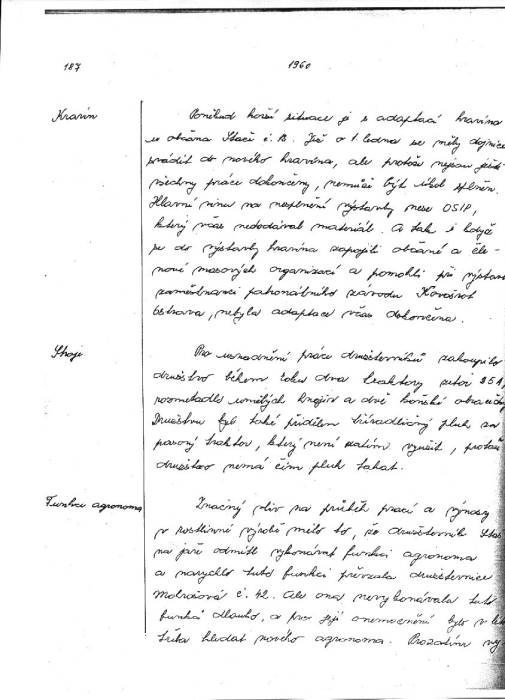 187
1960
Kravín
Poněkud horší situace je s adaptací kravína
u občana Stacě č. 13. Již o 1. lednu se měly dojnice
svádět do nového kravína, ale protože nejsou ještě
všechny práce dokončeny, nemůže být úkol splněn.
Hlavní vinu na nesplnění výstavby nese OSIP,
který včas nedodával materiál. A tak i když
se do výstavby kravína zapojili občané a čle-
nové masových organizací a pomohli při výstavbě
zaměstnanci patronátního závodu Kovošrot
Ostrava, nebyla adaptace včas dokončena.
Stroje
Pro usnadnění práce družstevníků zakoupilo
družstvo během roku dva traktory zetor 25A,
rozmetadlo umělých hnojiv a dvě koňské obracečky
Družstvu byl také přidělen tříradličný pluh za
pásový traktor, který není zatím využit, protože
družstvo nemá čím pluh tahat.
Funkce agronoma
Značný vliv na průběh prací a výnosy
v rostlinné výrobě mělo to, že družstevník
na jaře odmítl vykonávat funkci agronoma
a narychlo tuto funkci převzala družstevnice
č. 42. Ale ona nevykonávala tuto
funkci dlouho, a pro její onemocnění bylo v
třeba hledat nového agronoma. Prozatím